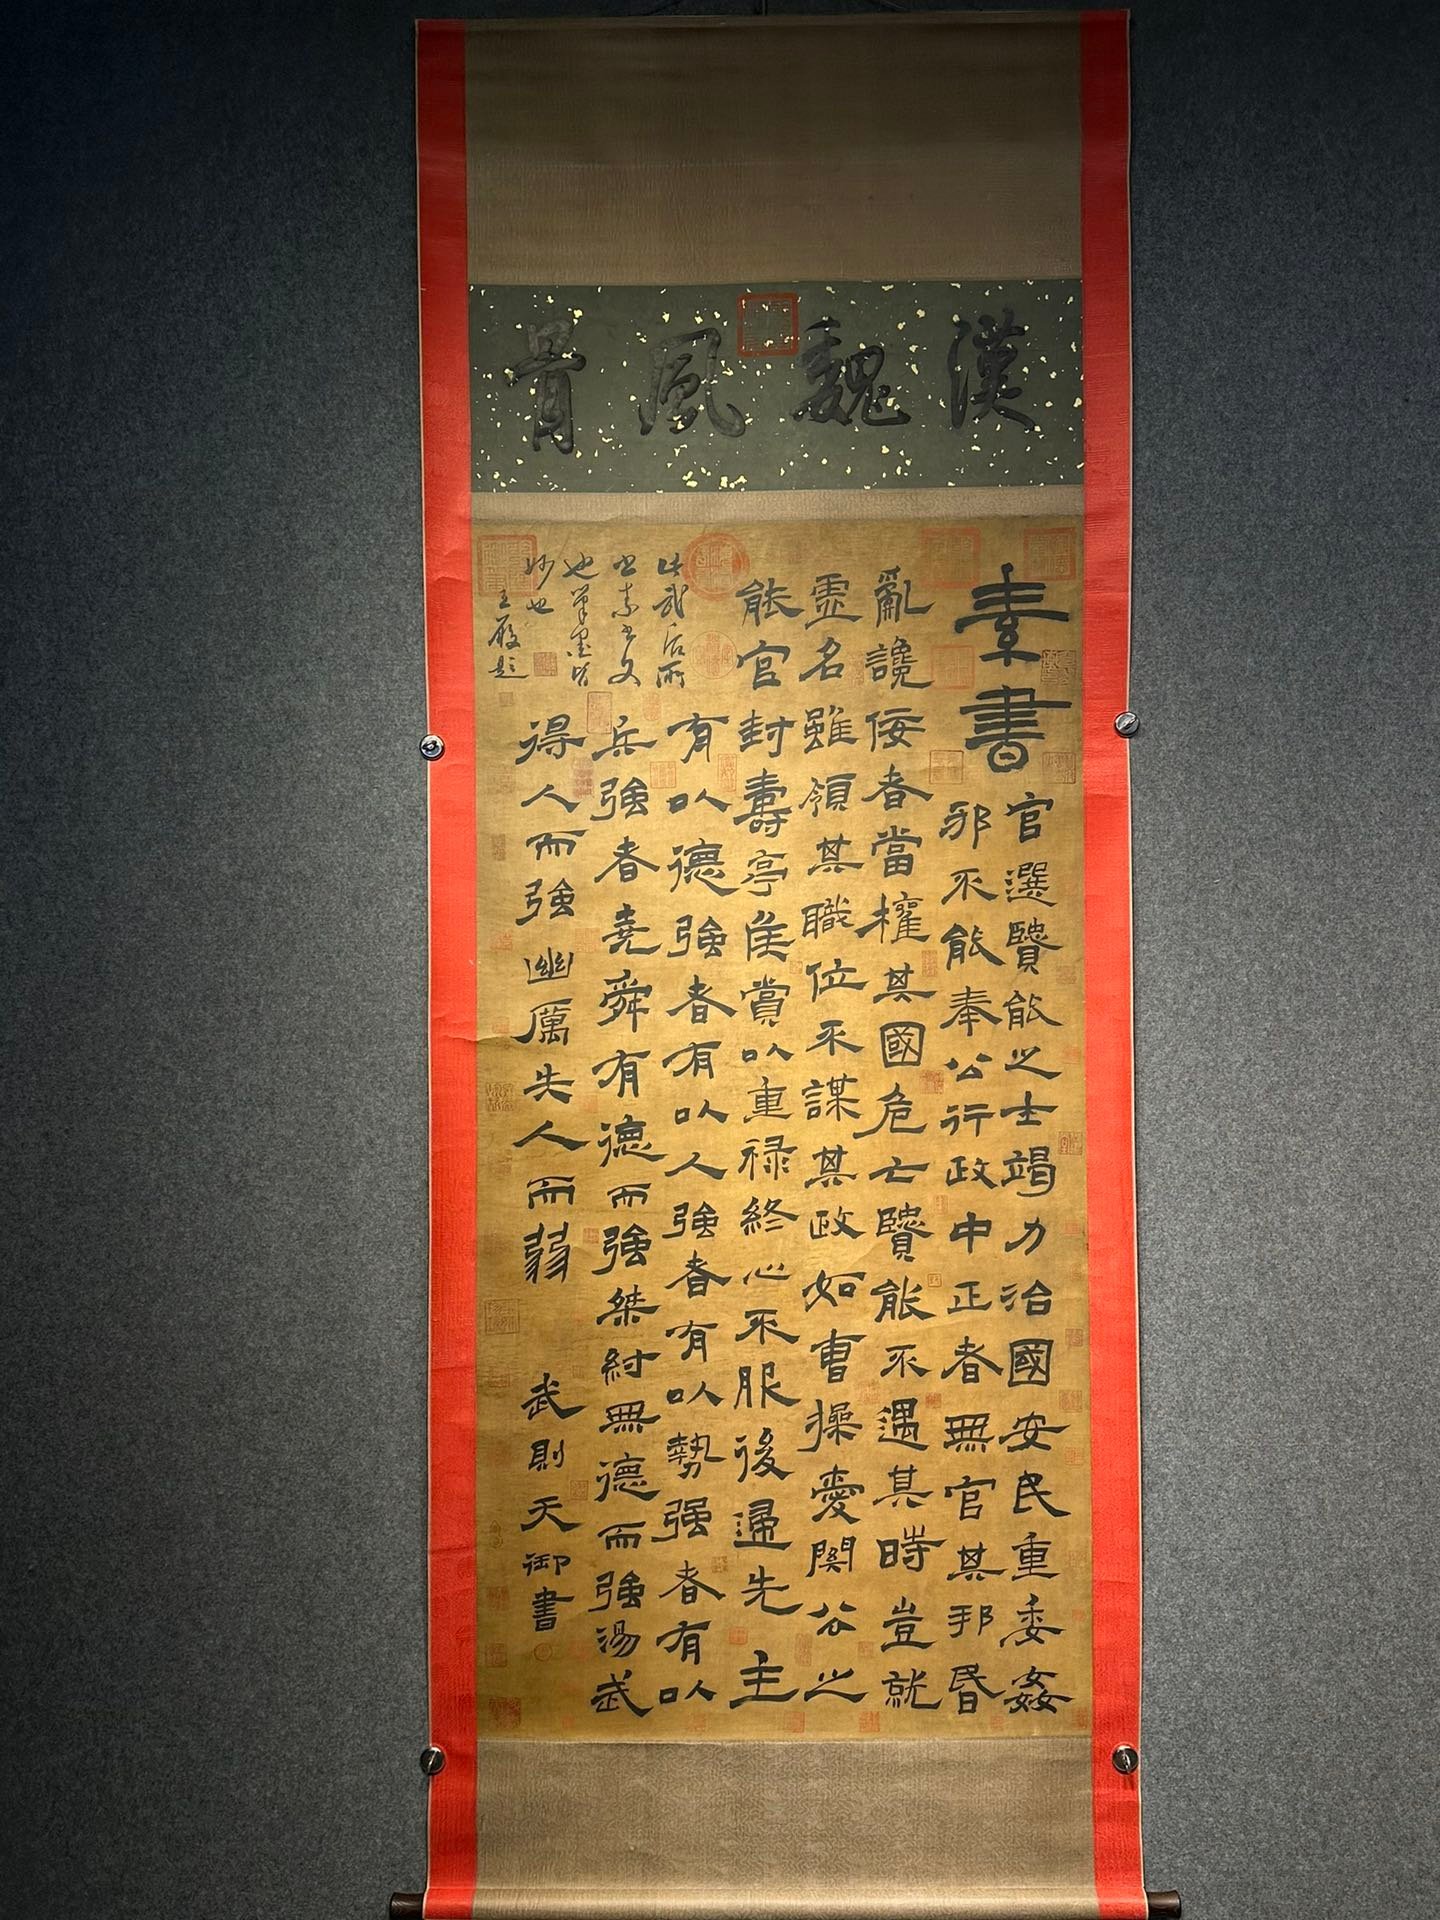 漢魏風骨
素書
官選賢能之士竭力治國安民重委姦
邪不能奉公行政中正者無官其邦昏
亂讒佞者當權其國危亡賢能不遇其時豈就
虛名雖領其職位不謀其政如曹操愛關公之
能官封壽亭侯賞以重祿終心不服後歸先主
有以德強者有以人強者有以勢强者有以
兵強者堯舜有德而強桀紂無德而強湯武
得人而強幽厲失人而弱
武則天御書
此武后所
書素書文
也筆墨皆
妙也
題